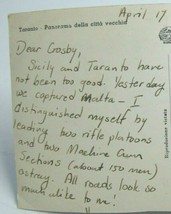 April 17
Taranto - Panorama della città vecchia
Dear Crosby,
Sicily and Taranto have
not been too good. Yesterday
we captured Malta - I
distinguished myself by
leading two rifle platoons
and two Machine Gun
Sections (about 150 men)
astray. All roads look so
much alike to me!